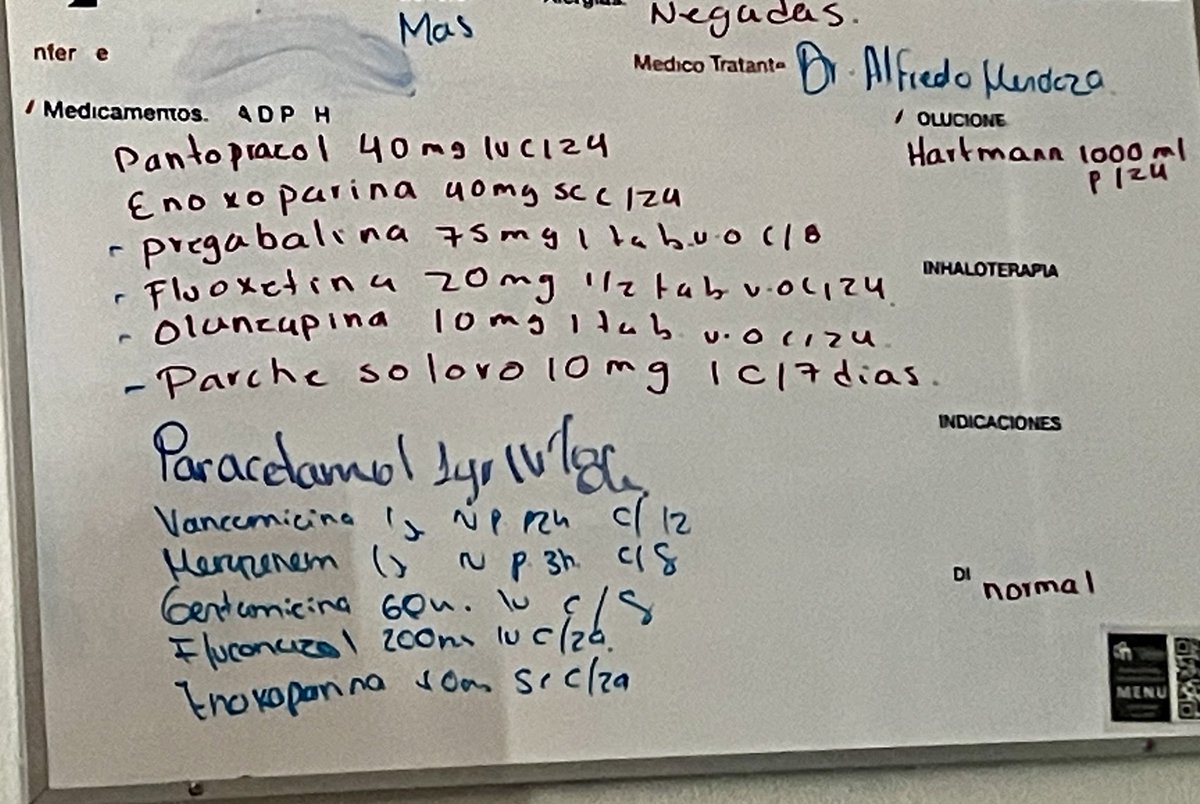 Mas
Negadas.
nfer e
Medico Tratante Dr. Alfredo Mendoza
Medicamentos. A D P H
OLUCIONE
Pantopracol 40mg IV C/24
Hartmann 1000 ml
P/24
Enoxoparina 40mg sc c/24
- pregabalina 75mg 1 tab v.o c/8
- Fluoxetina 20mg 1/2 tab v.o c/24
INHALOTERAPIA
- Olanzapina 10mg 1 tab v.o c/24
- Parche soloro 10mg 1 c/7 dias.
INDICACIONES
Paracetamol 1gr IV
Vancomicina c/12
p. 3h. c/8
DI normal
Gentamicina IV c/8
Fluconazol IV c/24
MENU